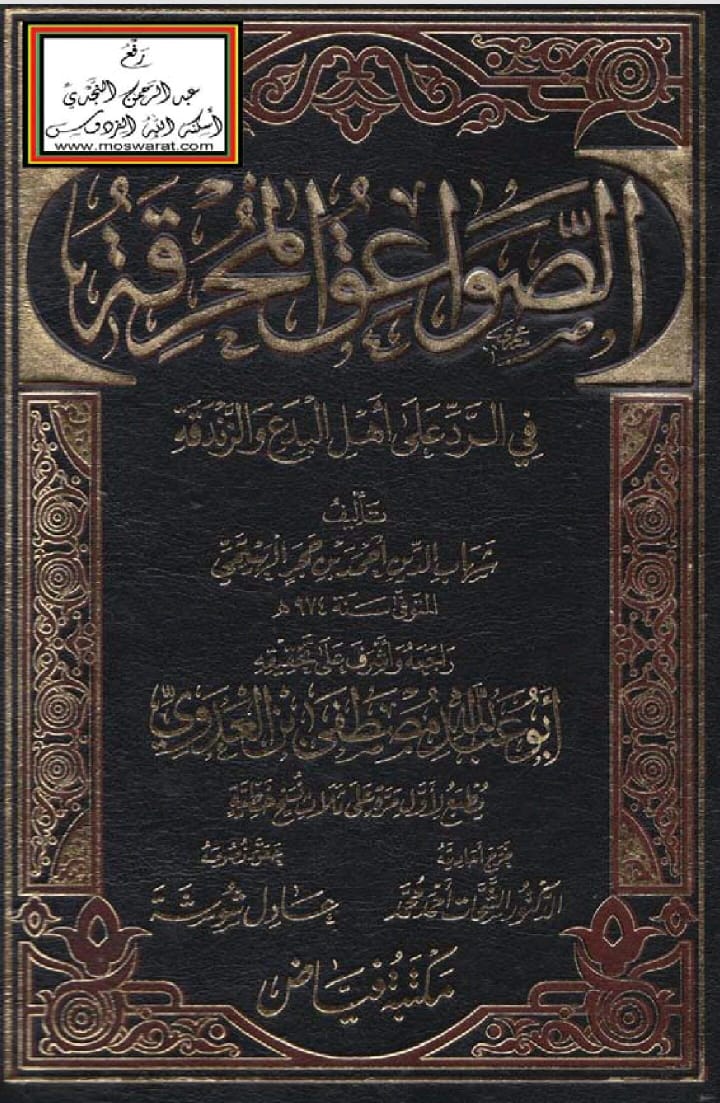 رَفْعُ
عبد الرحمن النجدي
أسكنه الله الفردوس
www.moswarat.com
الصَّوَاعِقُ المُحْرِقَةُ
فِي الرَّدِّ عَلَى أَهْلِ البِدَعِ وَالزَّنْدَقَةِ
تَأْلِيفُ
شهاب الدين أحمد بن حجر الهيتمي
المتوفى سنة ٩٧٤ هـ
راجعه وأشرف على تحقيقه
أبو عبد الله مصطفى بن العدوي
يطبع لأول مرة على ثلاث نسخ خطية
خرج أحاديثه
حقق نصوصه
الدكتور الشحات أحمد محمد
عادل شوشة
مكتبة فياض